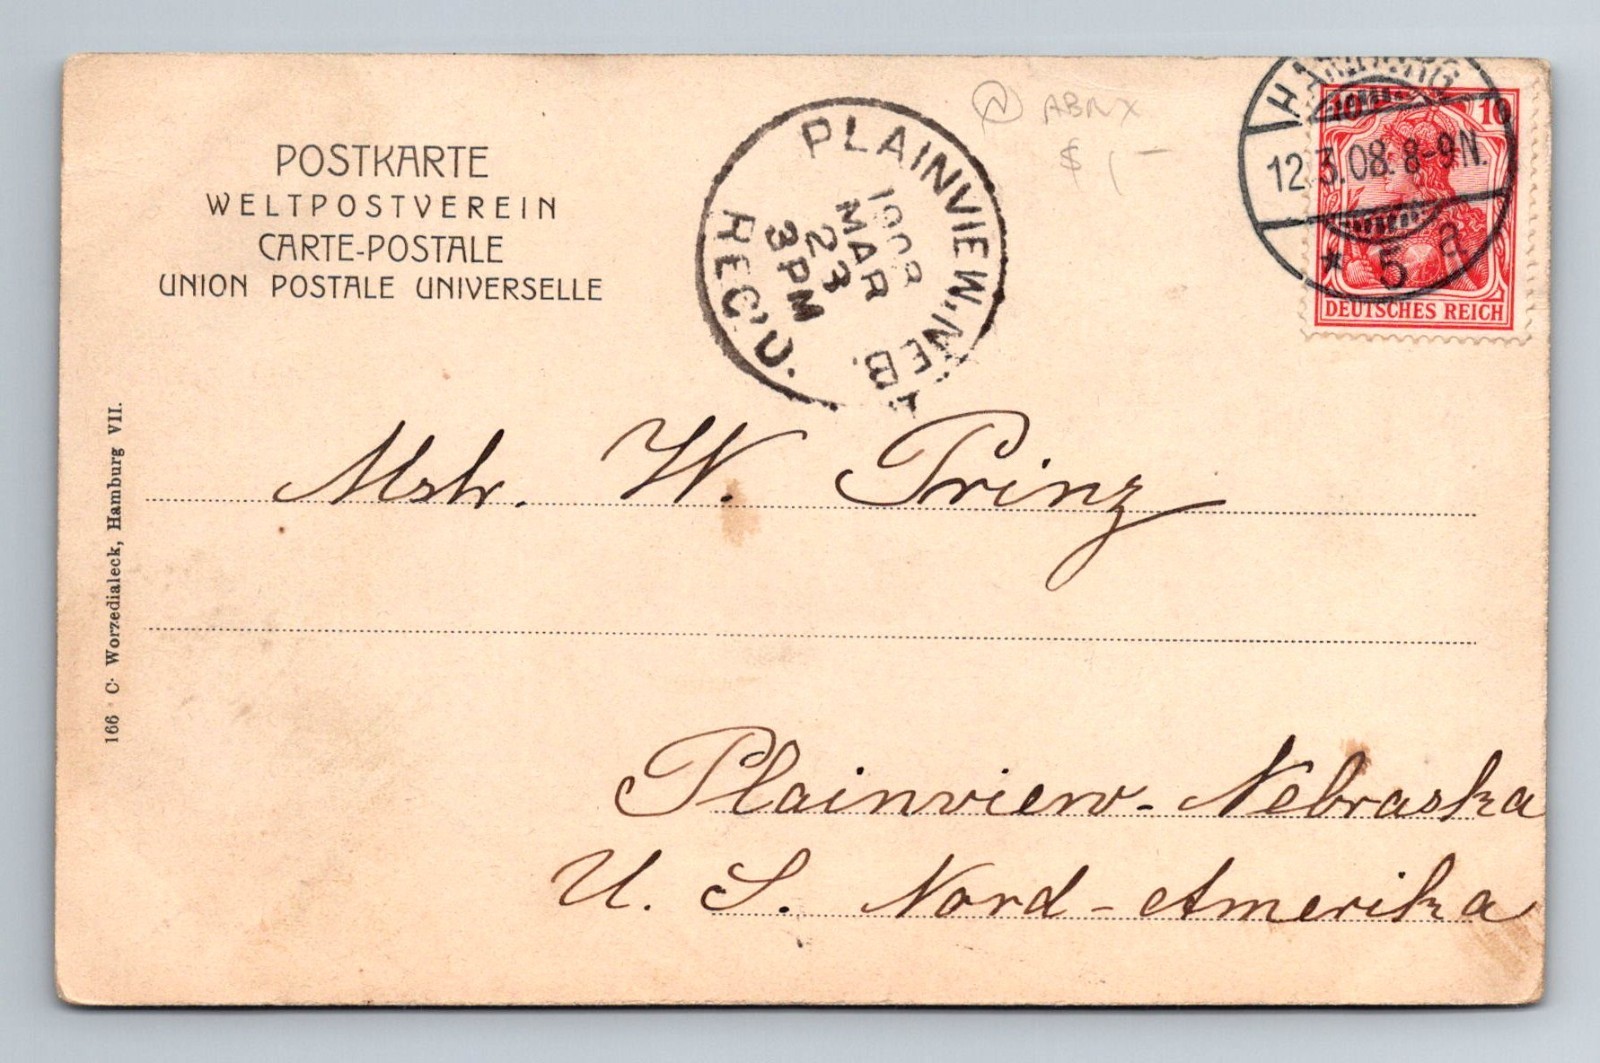 POSTKARTE
WELTPOSTVEREIN
CARTE-POSTALE
UNION POSTALE UNIVERSELLE
PLAINVIEW, NEB.
1908
MAR
23
3 PM
REC'D.
$ 1,-
HAMBURG
12.3.08.8-9N.
* 5 a
10 10
DEUTSCHES REICH
Mstr. W. Prinz
Plainview- Nebraska
U. S. Nord-Amerika
166 C. Worzedialeck, Hamburg VII.